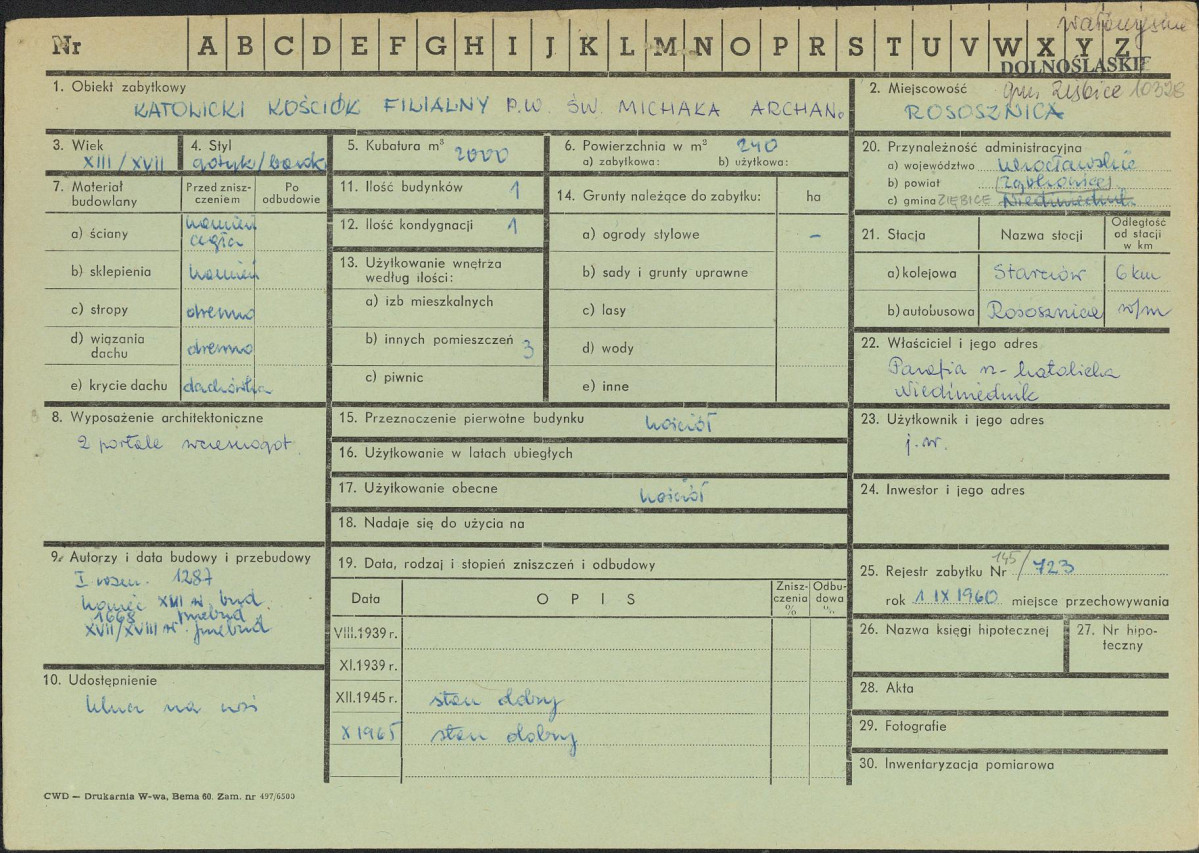 Nr A B C D E F G H I J K L M N O P R S T U V W X Y Z
DOLNOŚLĄSKIE
1. Obiekt zabytkowy
KATOLICKI KOŚCIÓŁ FILIALNY P.W. ŚW. MICHAŁA ARCHAN.
2. Miejscowość gm. Ziębice 10328
ROSOSZNICA
3. Wiek
XIII/XVII
4. Styl
gotyk/barok
5. Kubatura m³ 2000
6. Powierzchnia w m² 240
a) zabytkowa: b) użytkowa:
7. Materiał budowlany
Przed zniszczeniem
Po odbudowie
a) ściany kamień cegła
b) sklepienia kamień
c) stropy drewno
d) wiązania dachu drewno
e) krycie dachu dachówka
8. Wyposażenie architektoniczne
2 portale wczesnogot.
9. Autorzy i data budowy i przebudowy
I wzm. 1287
koniec XIII w. bud.
1668 przebud
XVII/XVIII w. przebud
10. Udostępnienie
klucz na wsi
11. Ilość budynków 1
12. Ilość kondygnacji 1
13. Użytkowanie wnętrza
według ilości:
a) izb mieszkalnych
b) innych pomieszczeń 3
c) piwnic
14. Grunty należące do zabytku: ha
a) ogrody stylowe –
b) sady i grunty uprawne
c) lasy
d) wody
e) inne
15. Przeznaczenie pierwotne budynku kościół
16. Użytkowanie w latach ubiegłych
17. Użytkowanie obecne kościół
18. Nadaje się do użycia na
19. Data, rodzaj i stopień zniszczeń i odbudowy
Data O P I S Zniszczenia % Odbudowa %
VIII.1939 r.
XI.1939 r.
XII.1945 r. stan dobry
X 1965 stan dobry
20. Przynależność administracyjna
a) województwo wrocławskie
b) powiat Ząbkowice
c) gmina ZIĘBICE
21. Stacja Nazwa stacji Odległość od stacji w km
a) kolejowa Starczów 6 km
b) autobusowa Rososznica w/m
22. Właściciel i jego adres
Parafia rz-katolicka
Niedźwiednik
23. Użytkownik i jego adres
j.w.
24. Inwestor i jego adres
25. Rejestr zabytku Nr 145/723
rok 1 IX 1960 miejsce przechowywania
26. Nazwa księgi hipotecznej
27. Nr hipoteczny
28. Akta
29. Fotografie
30. Inwentaryzacja pomiarowa
CWD — Drukarnia W-wa, Bema 60. Zam. nr 497/6500